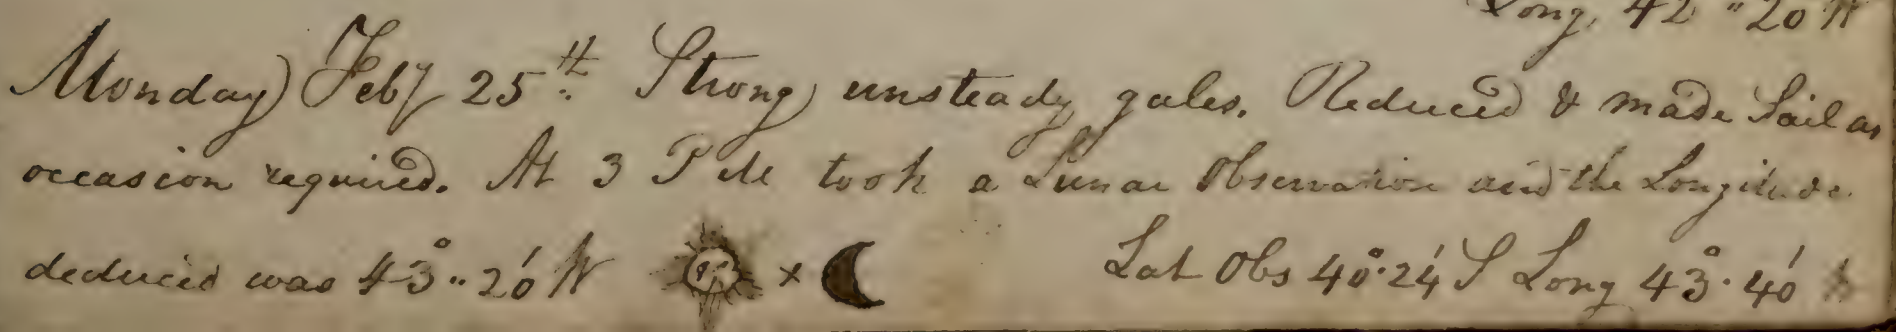 Long, 42 " 20 W
Monday Feby 25th. Strong unsteady gales. Reduced & made Sail as
occasion required. At 3 P M took a Lunar Observation and the Longitude
deduced was 43°" 20' W ☉ × ☾ Lat Obs 40°. 24' S Long 43°. 40'